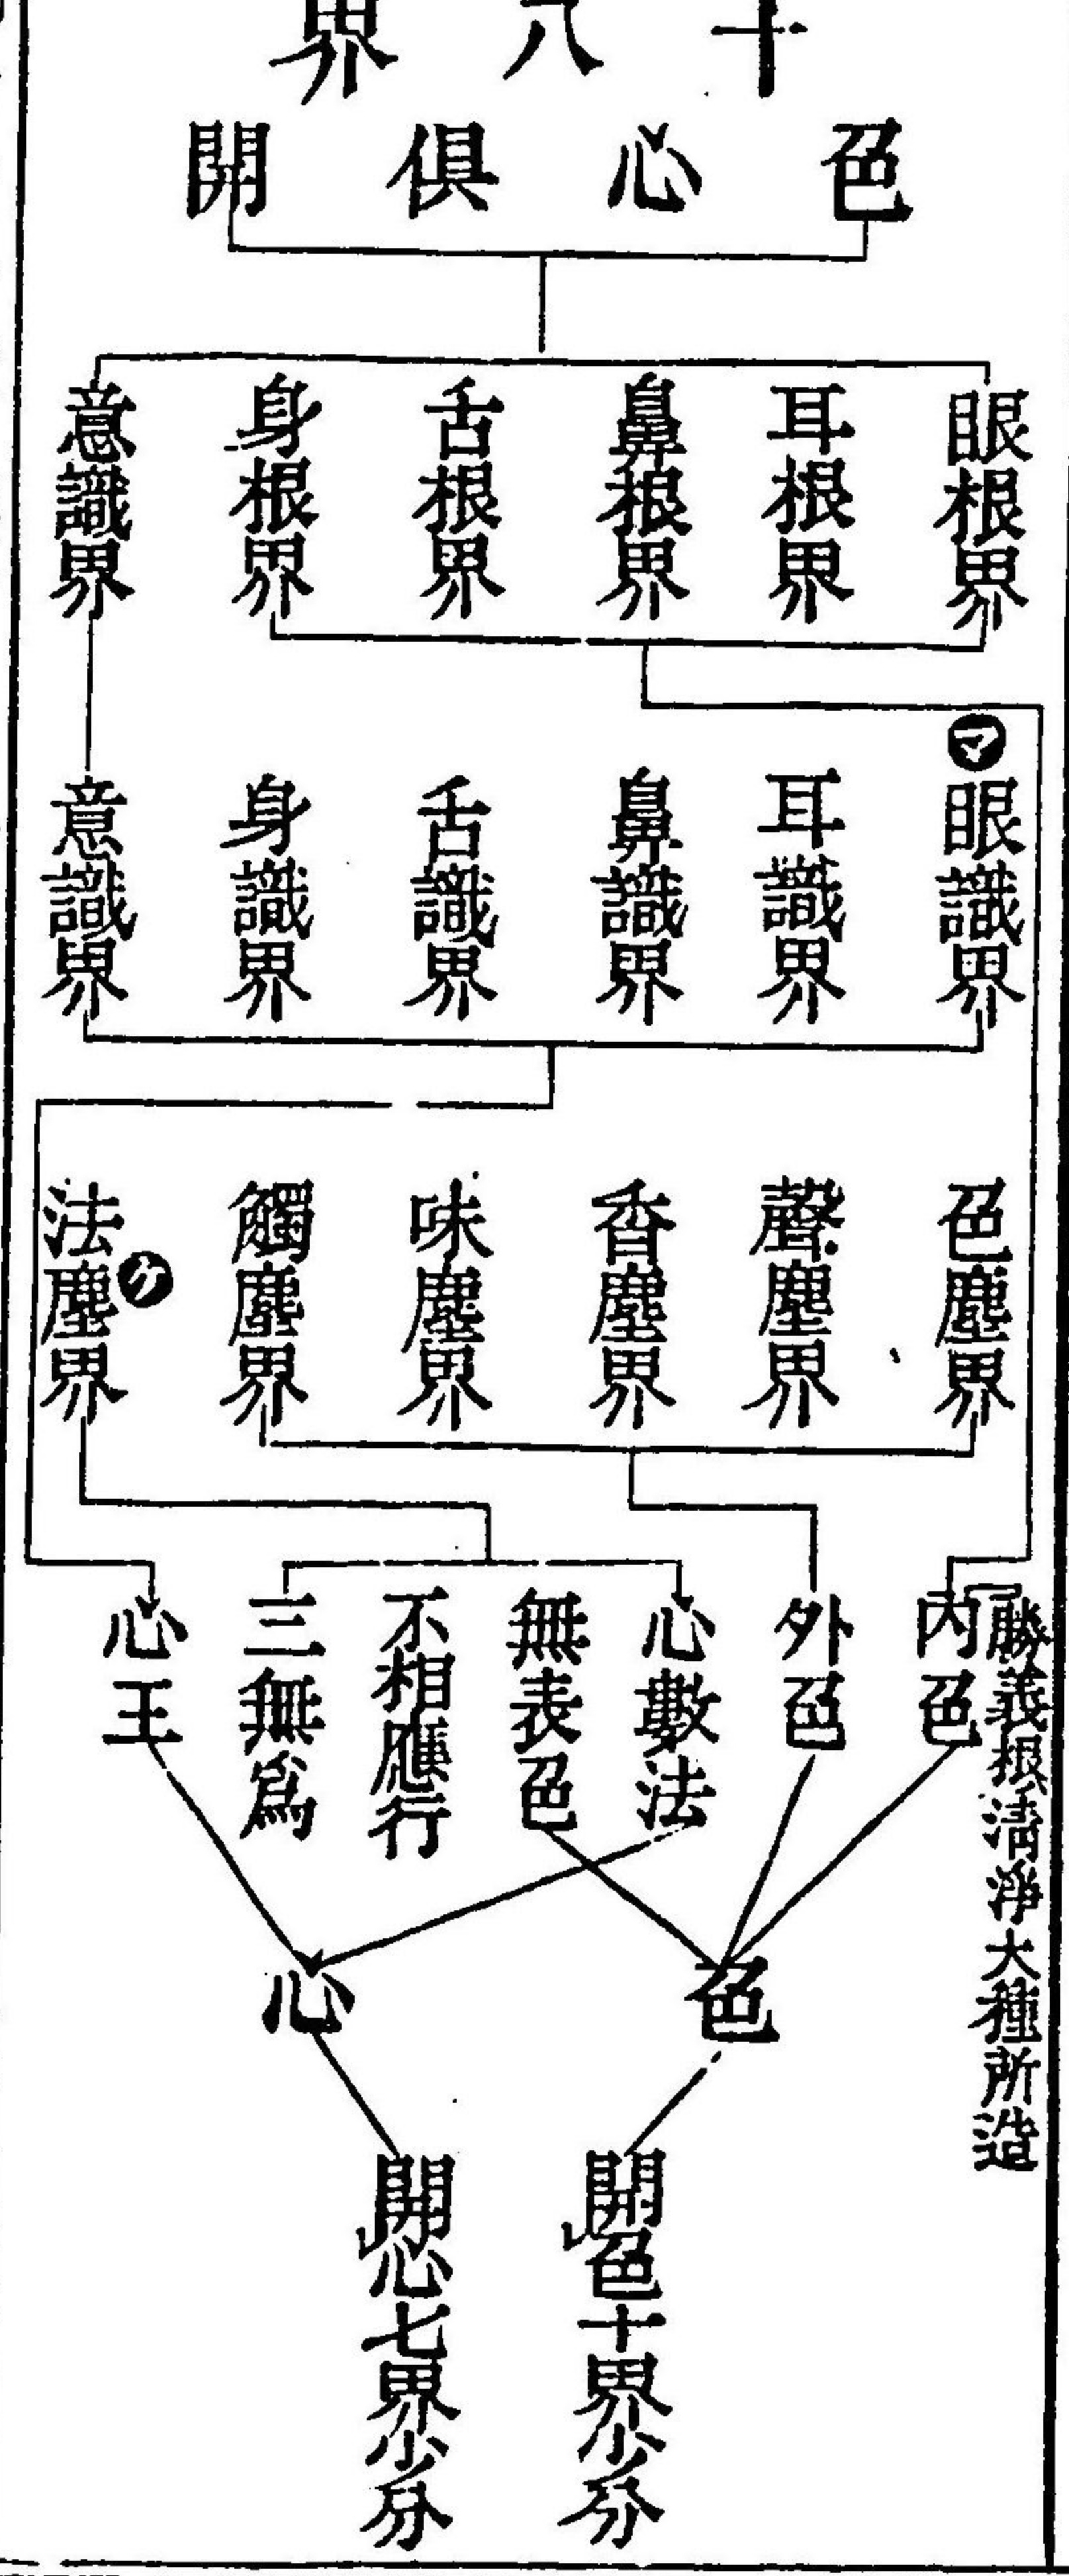 十八界
色心俱開
眼根界
耳根界
鼻根界
舌根界
身根界
意識界
マ
眼識界
耳識界
鼻識界
舌識界
身識界
意識界
色塵界
聲塵界
香塵界
味塵界
觸塵界
法塵界
ケ
勝義根清淨大種所造
內色
外色
心數法
無表色
不相應行
三無爲
心王
色
心
開色十界少分
開心七界少分